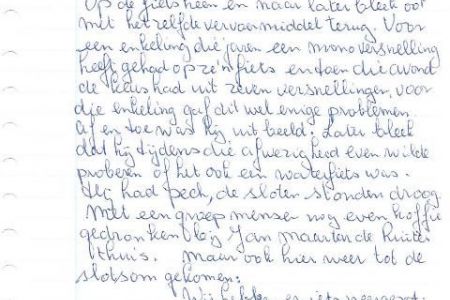 Op de fiets heen en naar later bleek ook
met hetzelfde vervoermiddel terug. Voor
een enkeling die jaren een mono versnelling
heeft gehad op ze'n fiets en toen die avond
de keus had uit zeven versnellingen, voor
die enkeling gaf dit wel enige problemen.
Af en toe was hij uit beeld. Later bleek
dat hij tijdens die afwezigheid even wilde
proberen of het ook een waterfiets was.
Hij had pech, de sloten stonden droog.
Met een groep mensen nog even koffie
gedronken bij Jan maarten de Ruiter
thuis. Maar ook hier weer tot de
slotsom gekomen:
Wij hebben er iets